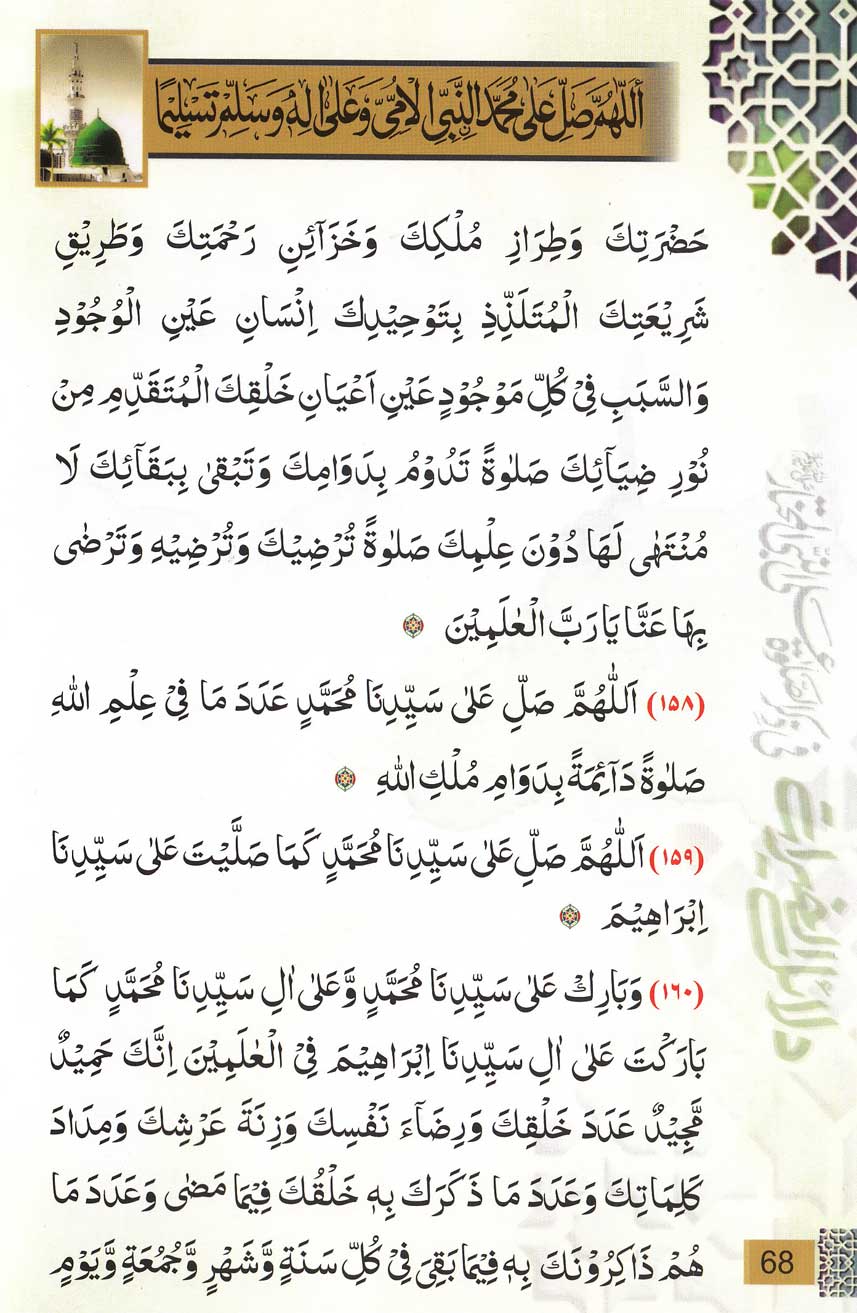 اَللّٰهُمَّ صَلِّ عَلٰی مُحَمَّدِ ۨالنَّبِیِّ الْاُمِّیِّ وَعَلٰی اٰلِهٖ وَسَلِّمْ تَسْلِیْمًا
حَضْرَتِكَ وَطِرَازِ مُلْكِكَ وَخَزَآئِنِ رَحْمَتِكَ وَطَرِیْقِ
شَرِیْعَتِكَ الْمُتَلَذِّذِ بِتَوْحِیْدِكَ اِنْسَانِ عَیْنِ الْوُجُوْدِ
وَالسَّبَبِ فِیْ كُلِّ مَوْجُوْدٍ عَیْنِ اَعْیَانِ خَلْقِكَ الْمُتَقَدِّمِ مِنْ
نُوْرِ ضِیَآئِكَ صَلٰوةً تَدُوْمُ بِدَوَامِكَ وَتَبْقٰی بِبَقَآئِكَ لَا
مُنْتَهٰی لَهَا دُوْنَ عِلْمِكَ صَلٰوةً تُرْضِیْكَ وَتُرْضِیْهِ وَتَرْضٰی
بِهَا عَنَّا یَا رَبَّ الْعٰلَمِیْنَ
(۱۵۸) اَللّٰهُمَّ صَلِّ عَلٰی سَیِّدِنَا مُحَمَّدٍ عَدَدَ مَا فِیْ عِلْمِ اللهِ
صَلٰوةً دَآئِمَةً بِدَوَامِ مُلْكِ اللهِ
(۱۵۹) اَللّٰهُمَّ صَلِّ عَلٰی سَیِّدِنَا مُحَمَّدٍ كَمَا صَلَّیْتَ عَلٰی سَیِّدِنَا
اِبْرَاهِیْمَ
(۱۶۰) وَبَارِكْ عَلٰی سَیِّدِنَا مُحَمَّدٍ وَّعَلٰی اٰلِ سَیِّدِنَا مُحَمَّدٍ كَمَا
بَارَكْتَ عَلٰی اٰلِ سَیِّدِنَا اِبْرَاهِیْمَ فِیْ الْعٰلَمِیْنَ اِنَّكَ حَمِیْدٌ
مَّجِیْدٌ عَدَدَ خَلْقِكَ وَرِضَآءَ نَفْسِكَ وَزِنَةَ عَرْشِكَ وَمِدَادَ
كَلِمَاتِكَ وَعَدَدَ مَا ذَكَرَكَ بِهٖ خَلْقُكَ فِیْمَا مَضٰی وَعَدَدَ مَا
هُمْ ذَاكِرُوْنَكَ بِهٖ فِیْمَا بَقِیَ فِیْ كُلِّ سَنَةٍ وَّشَهْرٍ وَّجُمُعَةٍ وَّیَوْمٍ
دلائل الخیرات
68